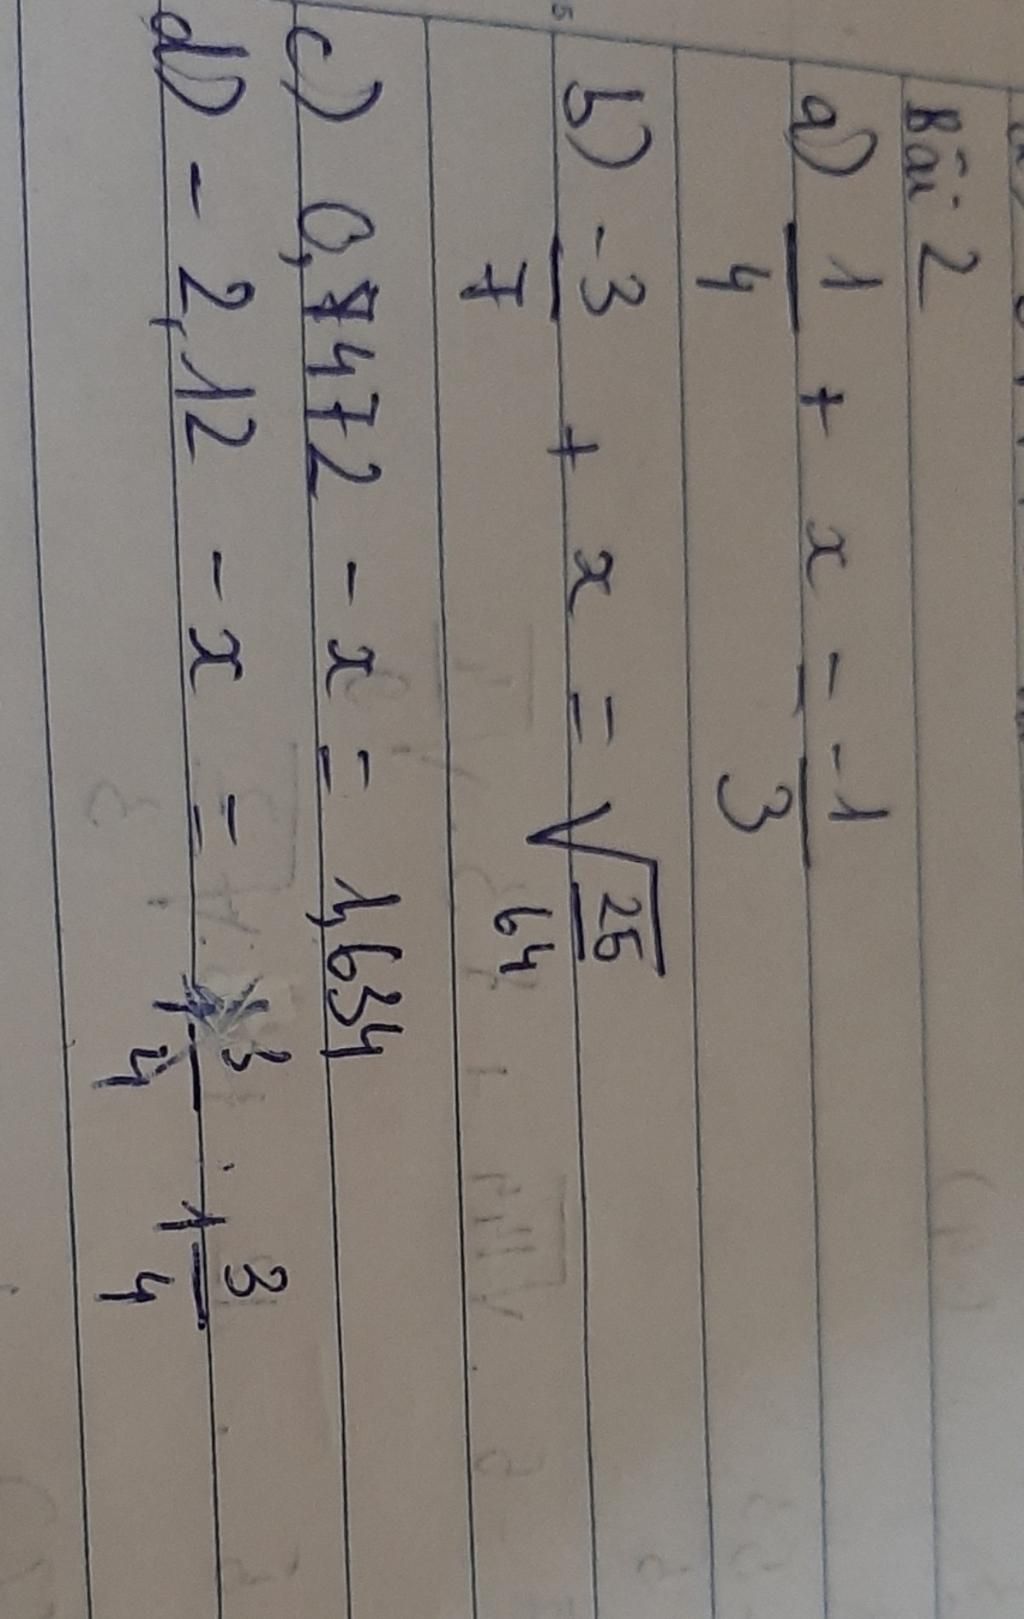 Bài 2
a) 1/4 + x = -1/3
b) -3/7 + x = √(25/64)
c) 0,472 - x = 1,634
d) - 2,12 - x = 1 3/4